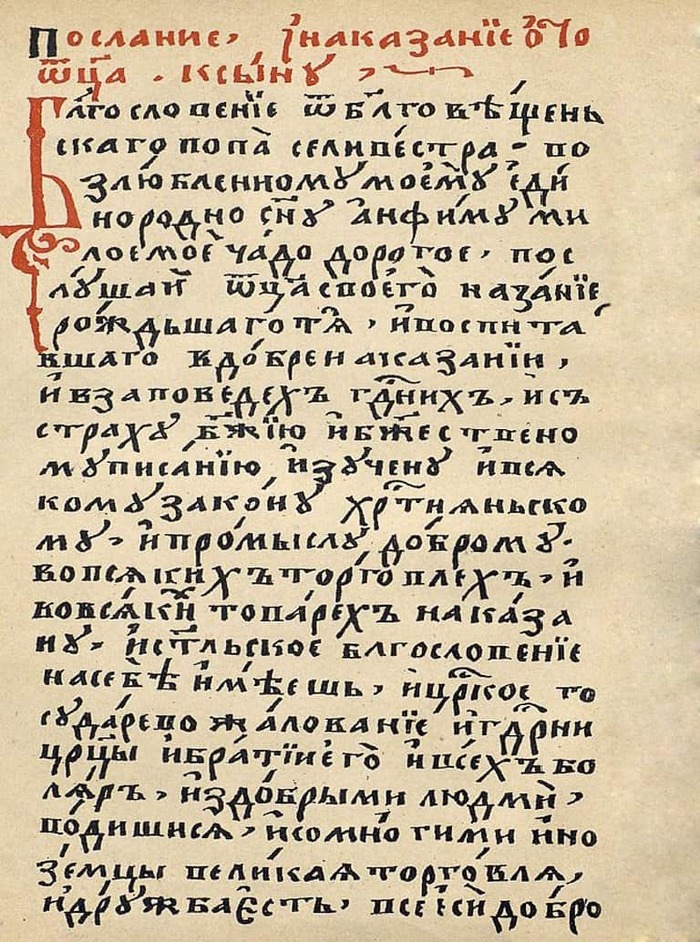 Послание, і҆наказанїе ѿ то
ѿца . ксы́ну ,
Бл҃гословенїе ѿ бл҃говѣщень
скаго попа селивестра - во
злюбленному моемꙋ еди
нородно сн҃ꙋ анфимꙋ ми
лоемое чадо дорогое, пос
лꙋшай ѿца своего наказанїе
рождьшаго тѧ, и воспита
вшаго вдобренаказанїи,
и взаповедехъ гд҃нихъ, и съ
страхꙋ бж҃їю ибж҃ествено
мꙋписанїю изꙋченꙋ ивсѧ
комꙋзаконꙋ хрт҃иѧньско
мꙋ, ипромыслꙋ доброму.
вовсѧкихъ торговлехъ, и
вовсѧкии товарехъ наказа
нꙋ, ист҃льское благословенїе
насебѣ имѣешь, ицр҃кое го
сꙋдарево жалованїе игд҃рни
црц҃ы ибратїиего ивсехъ бо
лѧръ, издобрыми людми,
водишисѧ, исомногими ино
земцы великаѧ торговлѧ,
идрꙋжбаесть, все еси добро